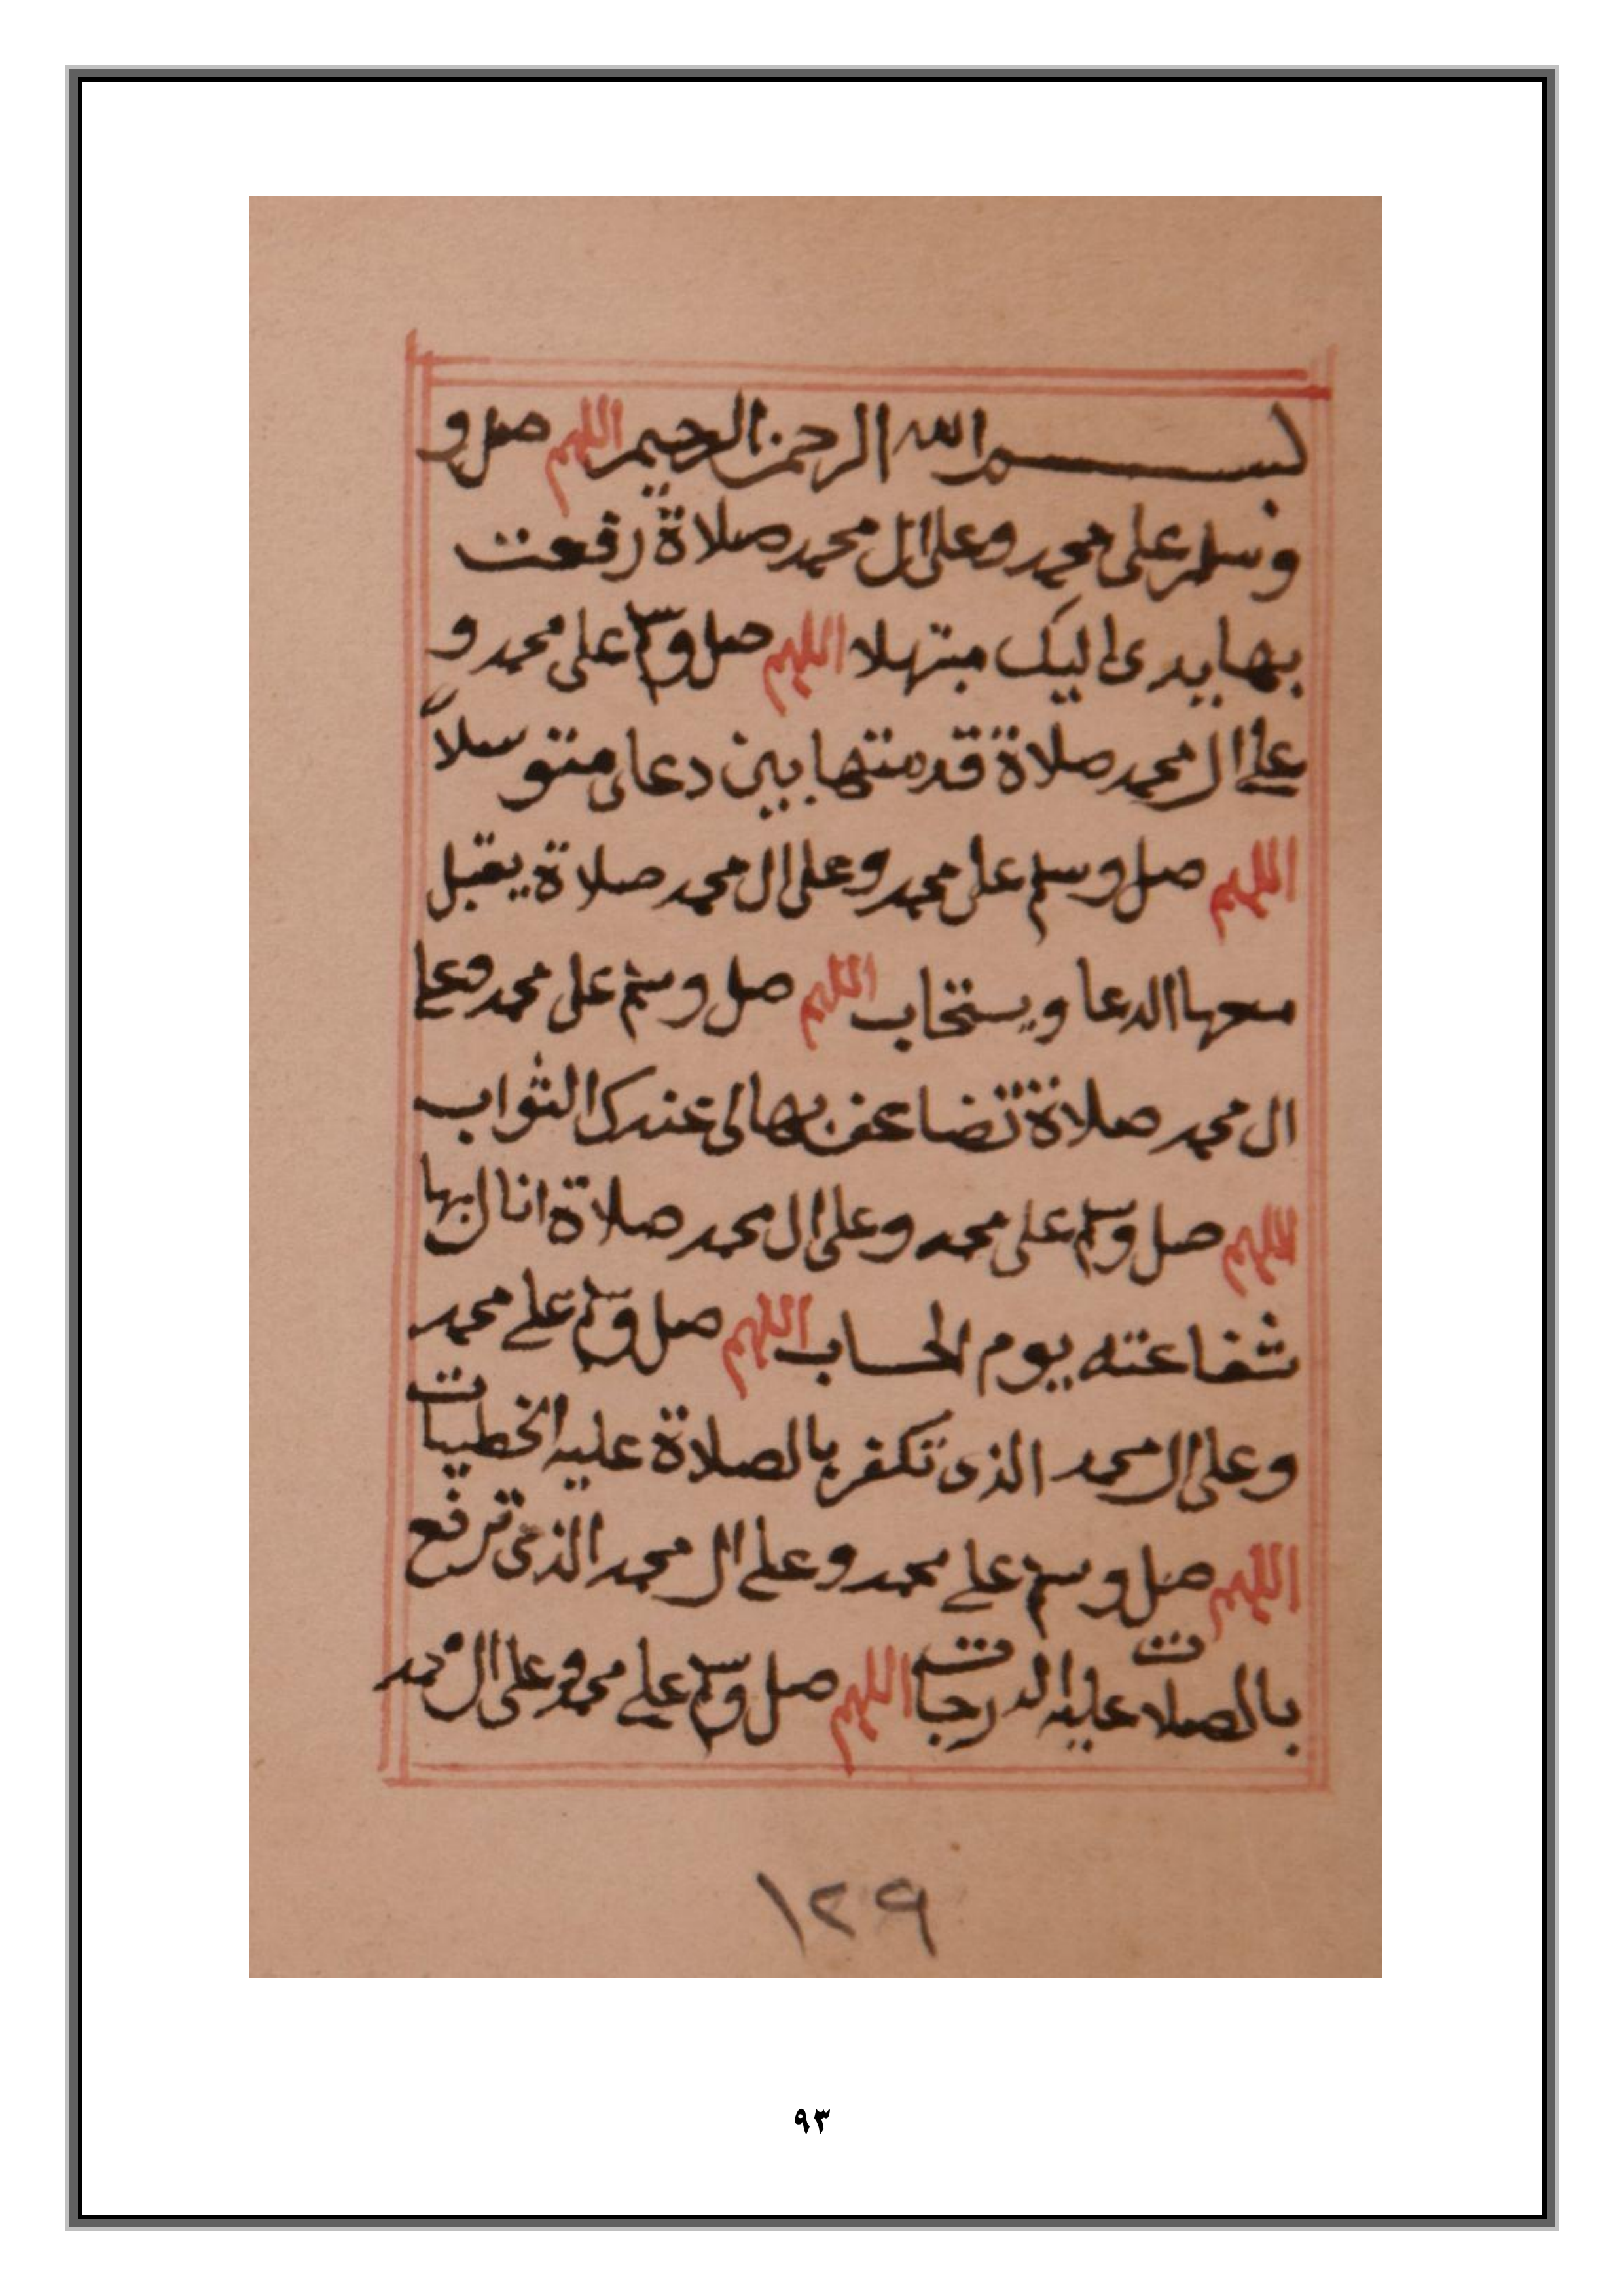 بسم الله الرحمن الرحيم اللهم صل و
وسلم على محمد وعلى ال محمد صلاة رفعت
بها يدى اليك مبتهلا اللهم صل وسلم على محمد و
على ال محمد صلاة قدمتها بين دعاى متوسلاً
اللهم صل وسلم على محمد وعلى ال محمد صلاة يقبل
معها الدعا ويستجاب اللهم صل وسلم على محمد وعلى
ال محمد صلاة تضاعف بها لى عندك الثواب
اللهم صل وسلم على محمد وعلى ال محمد صلاة انال بها
شفاعته يوم الحساب اللهم صل وسلم على محمد
وعلى ال محمد الذى تكفر بالصلاة عليه الخطيات
اللهم صل وسلم على محمد وعلى ال محمد الذى ترفع
بالصلات عليه الدرجات اللهم صل وسلم على محمد وعلى ال محمد
١٢٩
٩٣